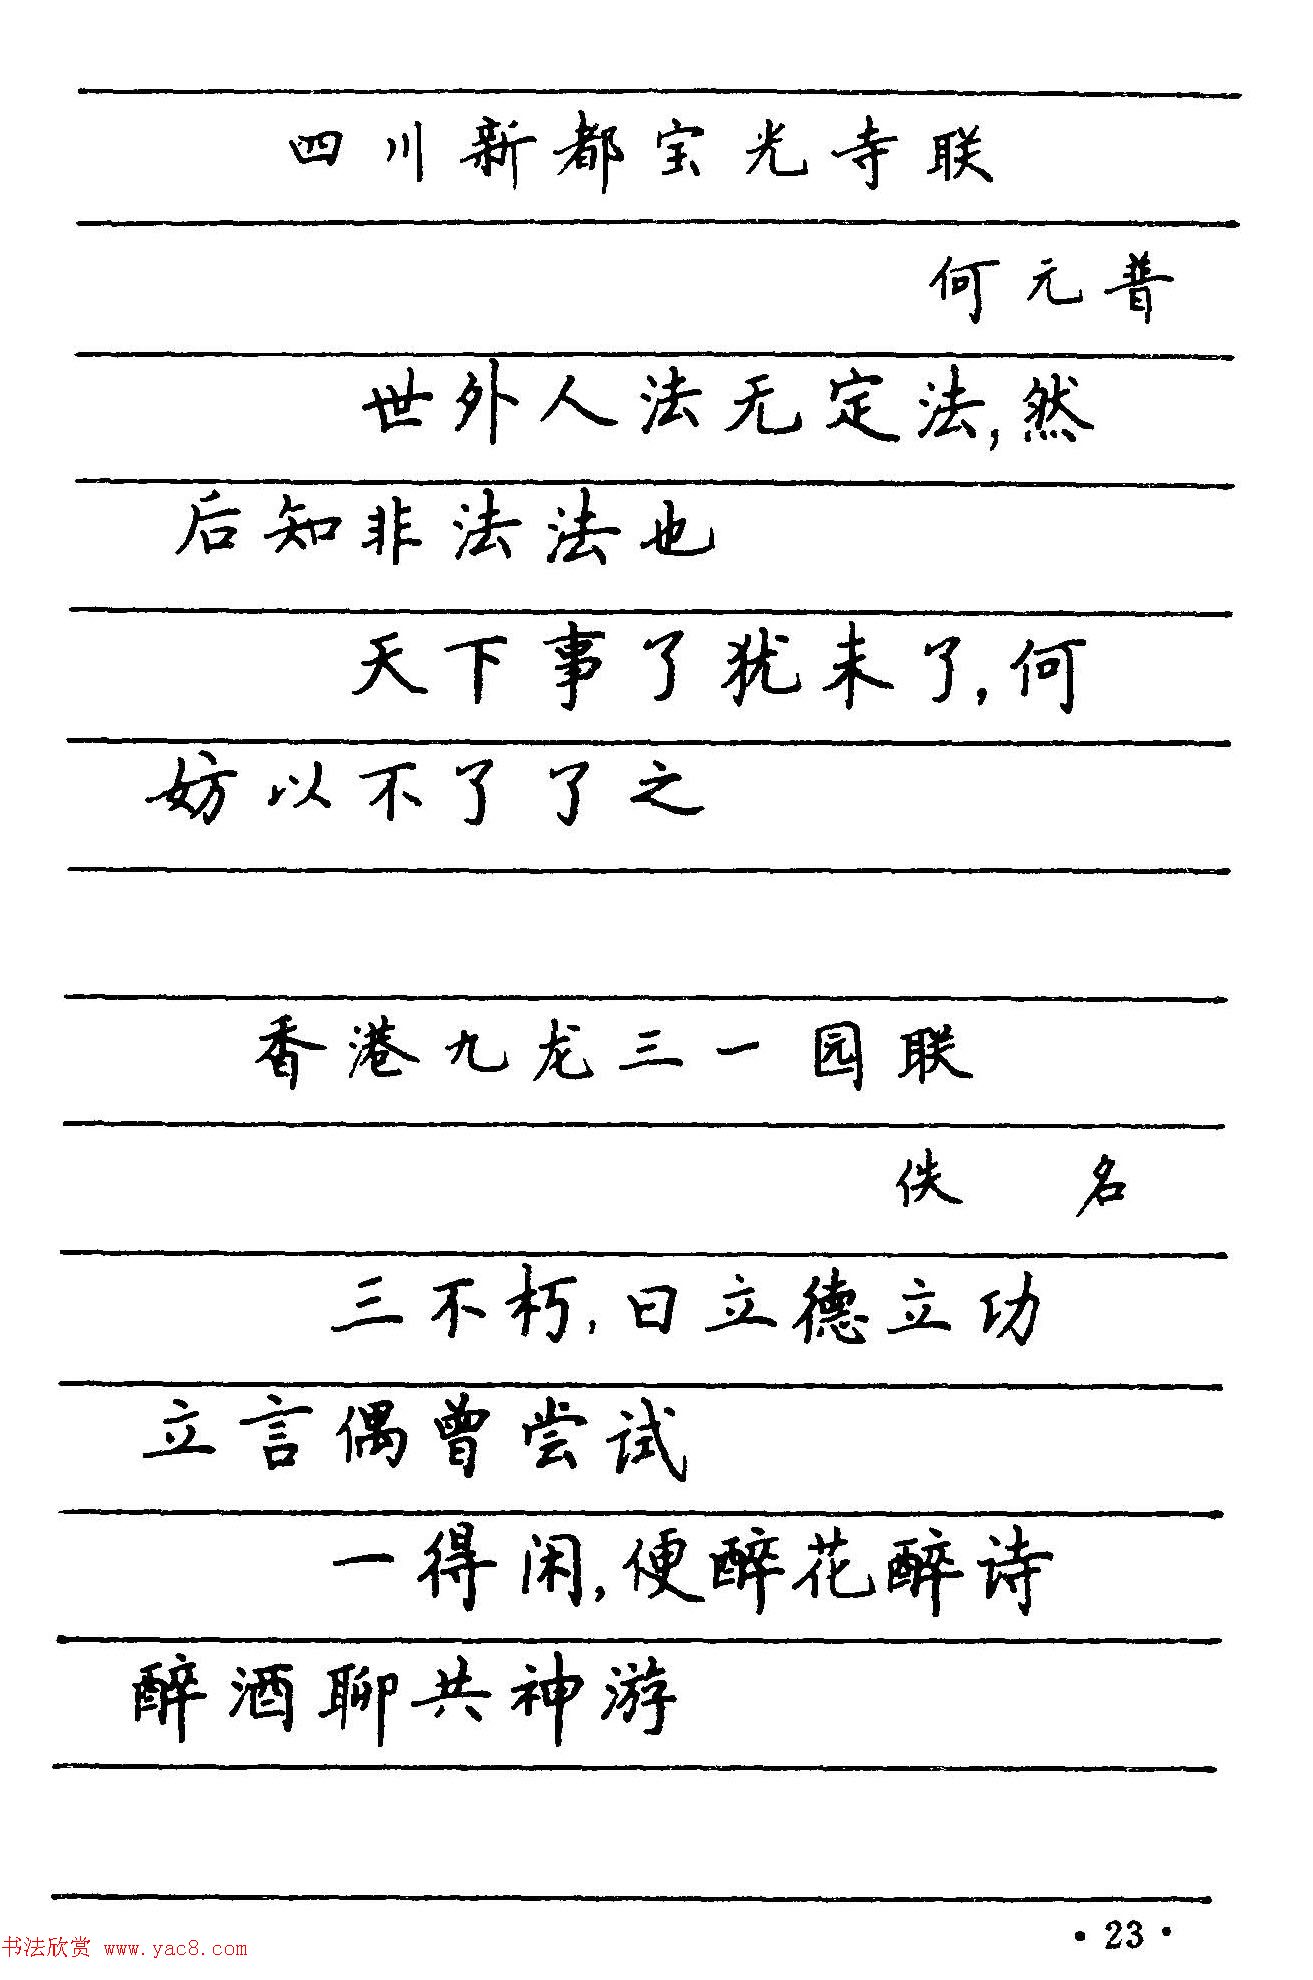 四川新都宝光寺联
何元普
世外人法无定法,然
后知非法法也
天下事了犹未了,何
妨以不了了之
香港九龙三一园联
佚 名
三不朽,曰立德立功
立言偶曾尝试
一得闲,便醉花醉诗
醉酒聊共神游
书法欣赏 www.yac8.com
·23·